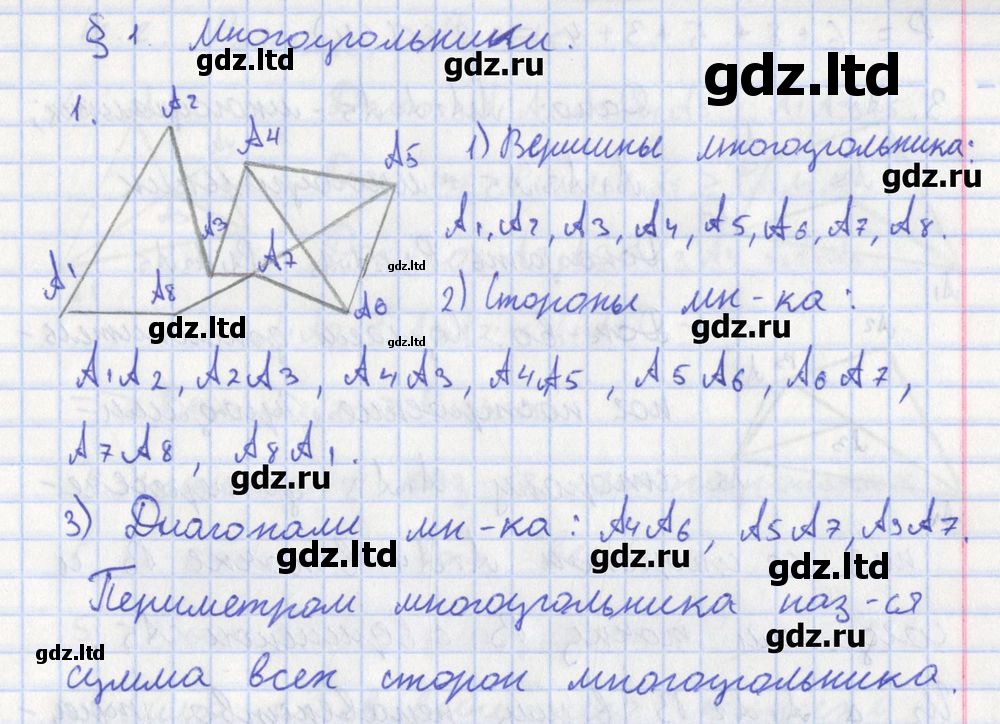 § 1. Многоугольники.
gdz.ltd gdz.ltd gdz.ltd
1. A2
A4 A5 1) Вершины многоугольника:
gdz.ru
A3 A7 A1, A2, A3, A4, A5, A6, A7, A8.
gdz.ltd
A1 A8 A6 2) Стороны мн-ка:
gdz.ltd gdz.ltd gdz.ru
A1A2, A2A3, A4A3, A4A5, A5A6, A6A7,
gdz.ltd gdz.ru
A7A8, A8A1.
gdz.ru
3) Диагонали мн-ка: A4A6, A5A7, A3A7.
gdz.ltd gdz.ru gdz.ltd
Периметром многоугольника наз-ся
gdz.ru
gdz.ltd
сумма всех сторон многоугольника.
gdz.ltd gdz.ru